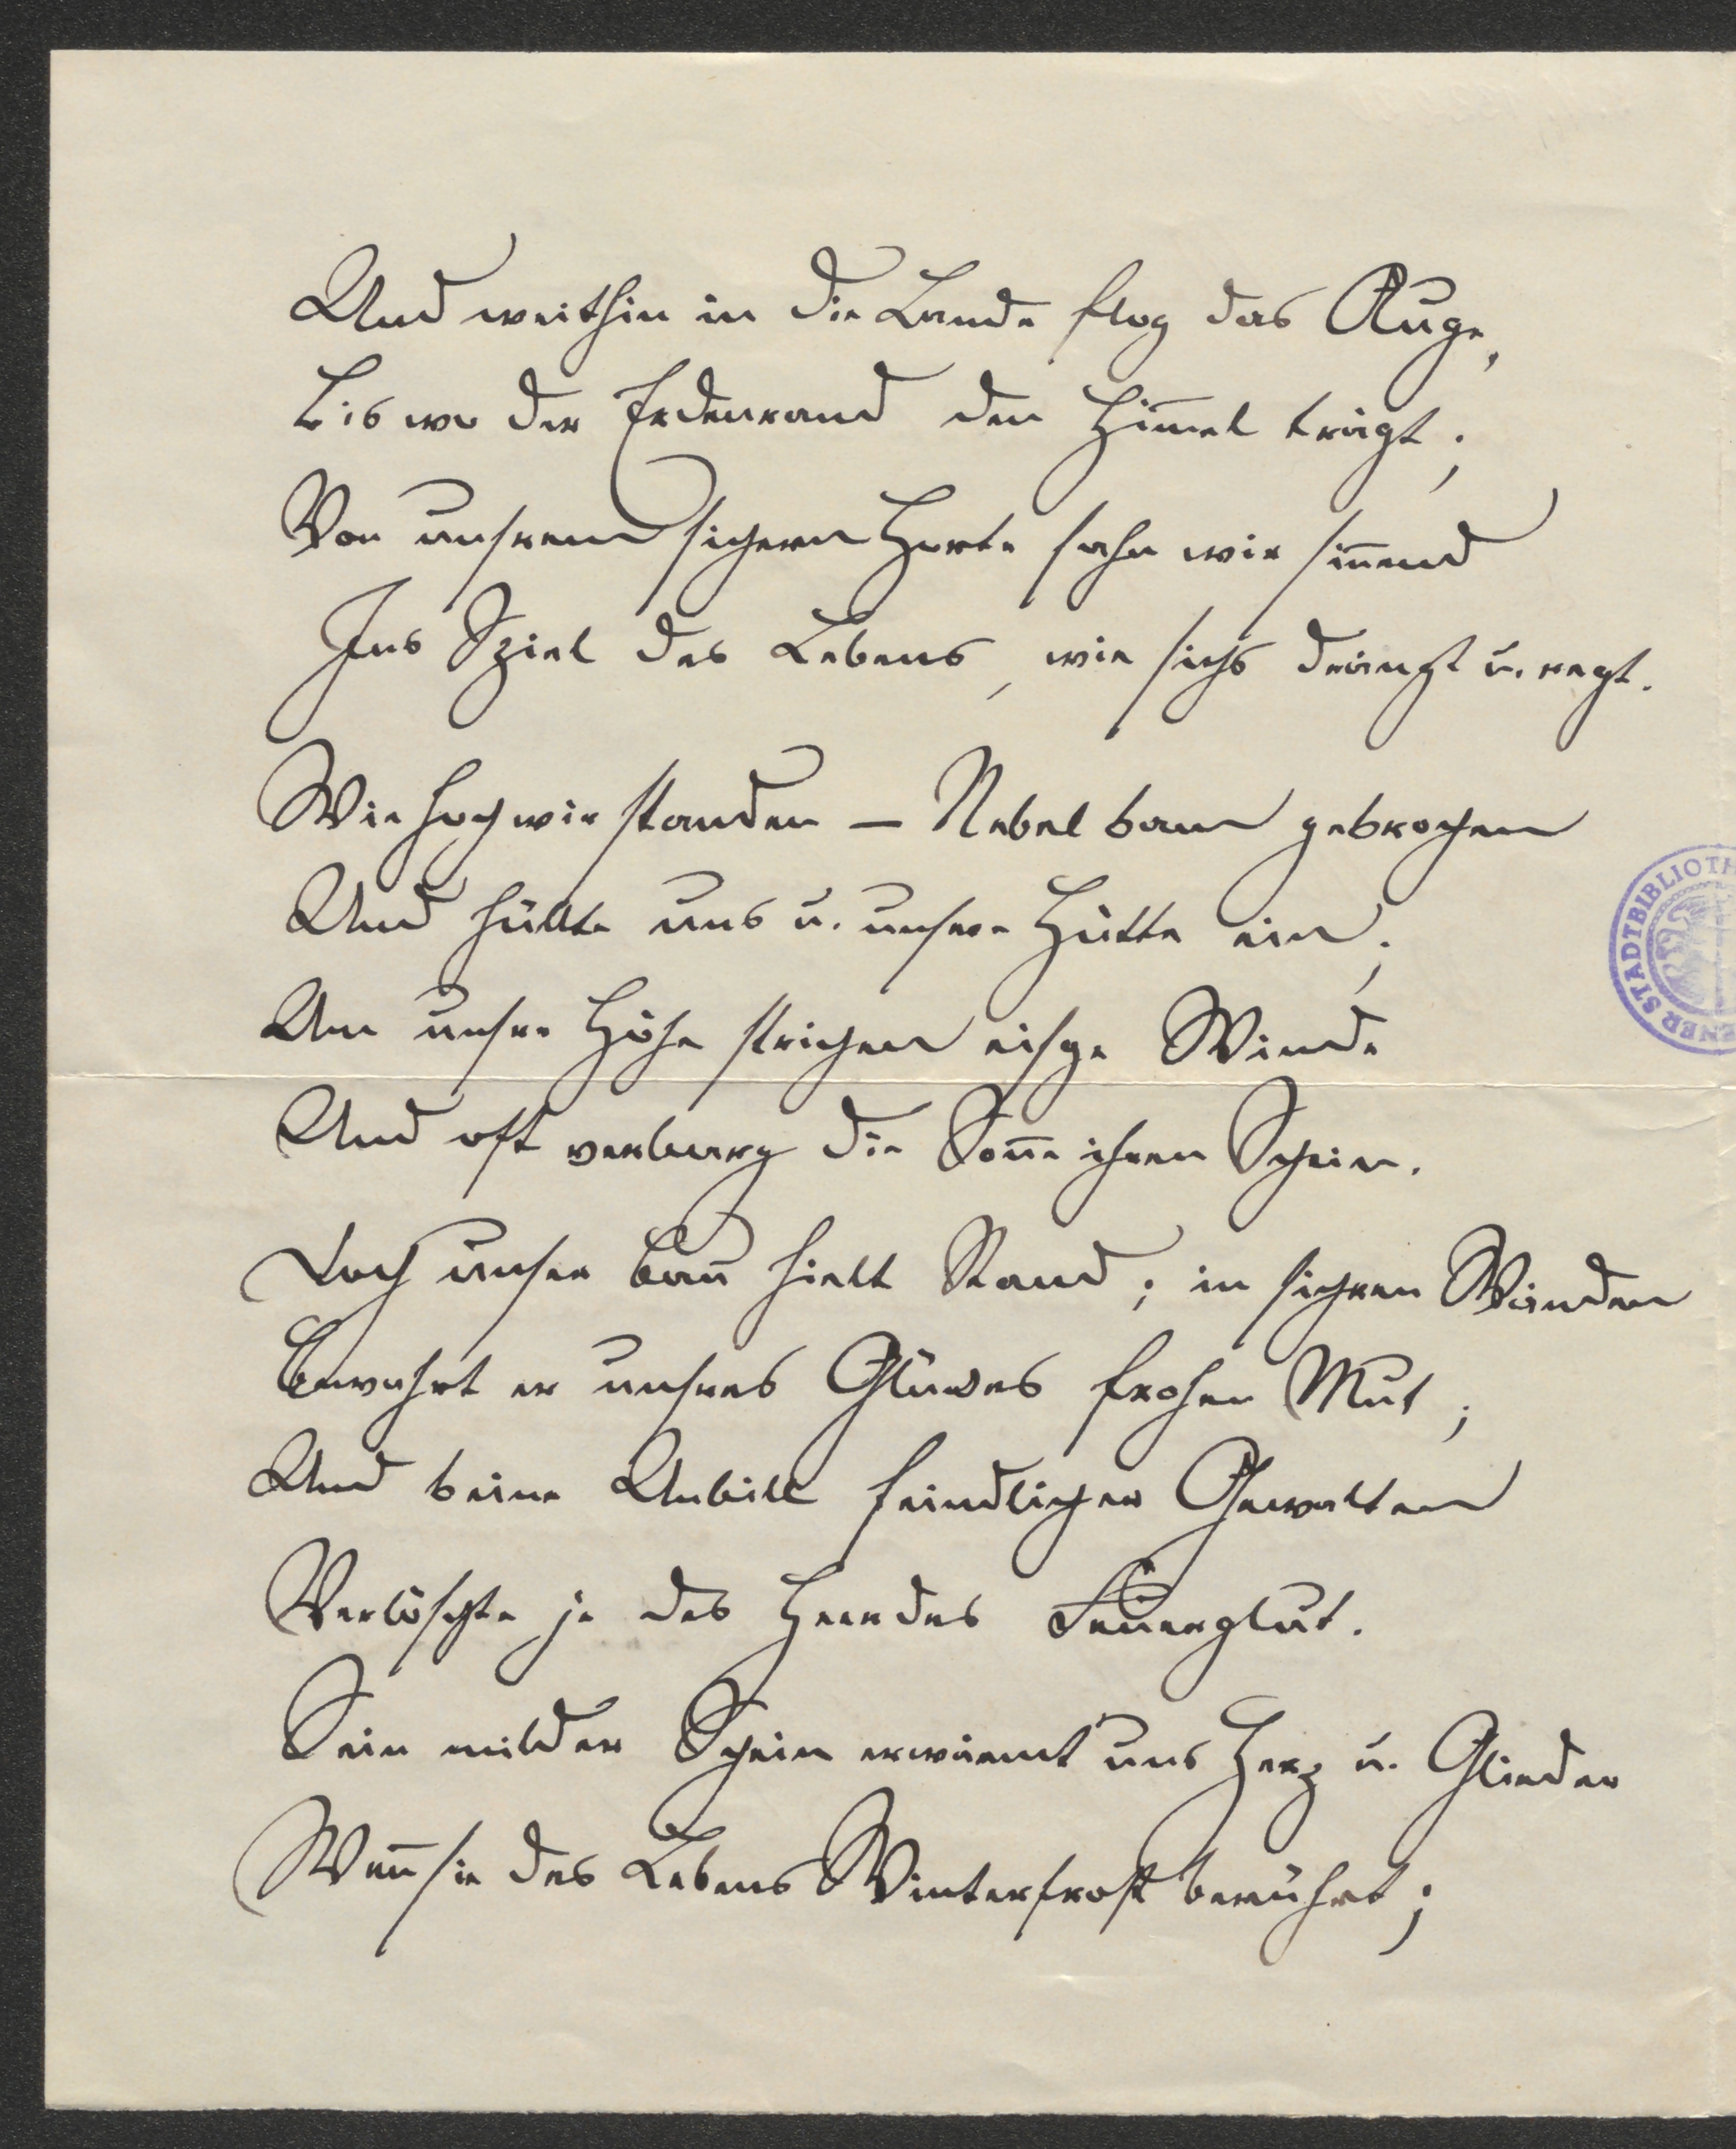 Und weithin in die Lande flog das Auge,
Bis wo der Erdenrand den Him̄el trägt;
Von unsrem sichern Horte sahn wir sin̄end
Ins Spiel des Lebens, wie sichs drängt u. regt.
Wie hoch wir standen – Nebel kam gekrochen
Und hüllte uns u. unsere Hütte ein;
Um unsre Höhe strichen eisge Winde
Und oft verbarg die Son̄e ihren Schein.
Doch unser Bau hielt Stand; in sichren Wänden
Bewahrt er unsres Glückes frohen Mut;
Und keine Unbill feindlicher Gewalten
Verlöschte je des Heerdes Feuerglut.
Sein milder Schein erwärmt uns Herz u. Glieder
Wen̄ sie des Lebens Winterfrost berührt;
ENER STADTBIBLIOTH